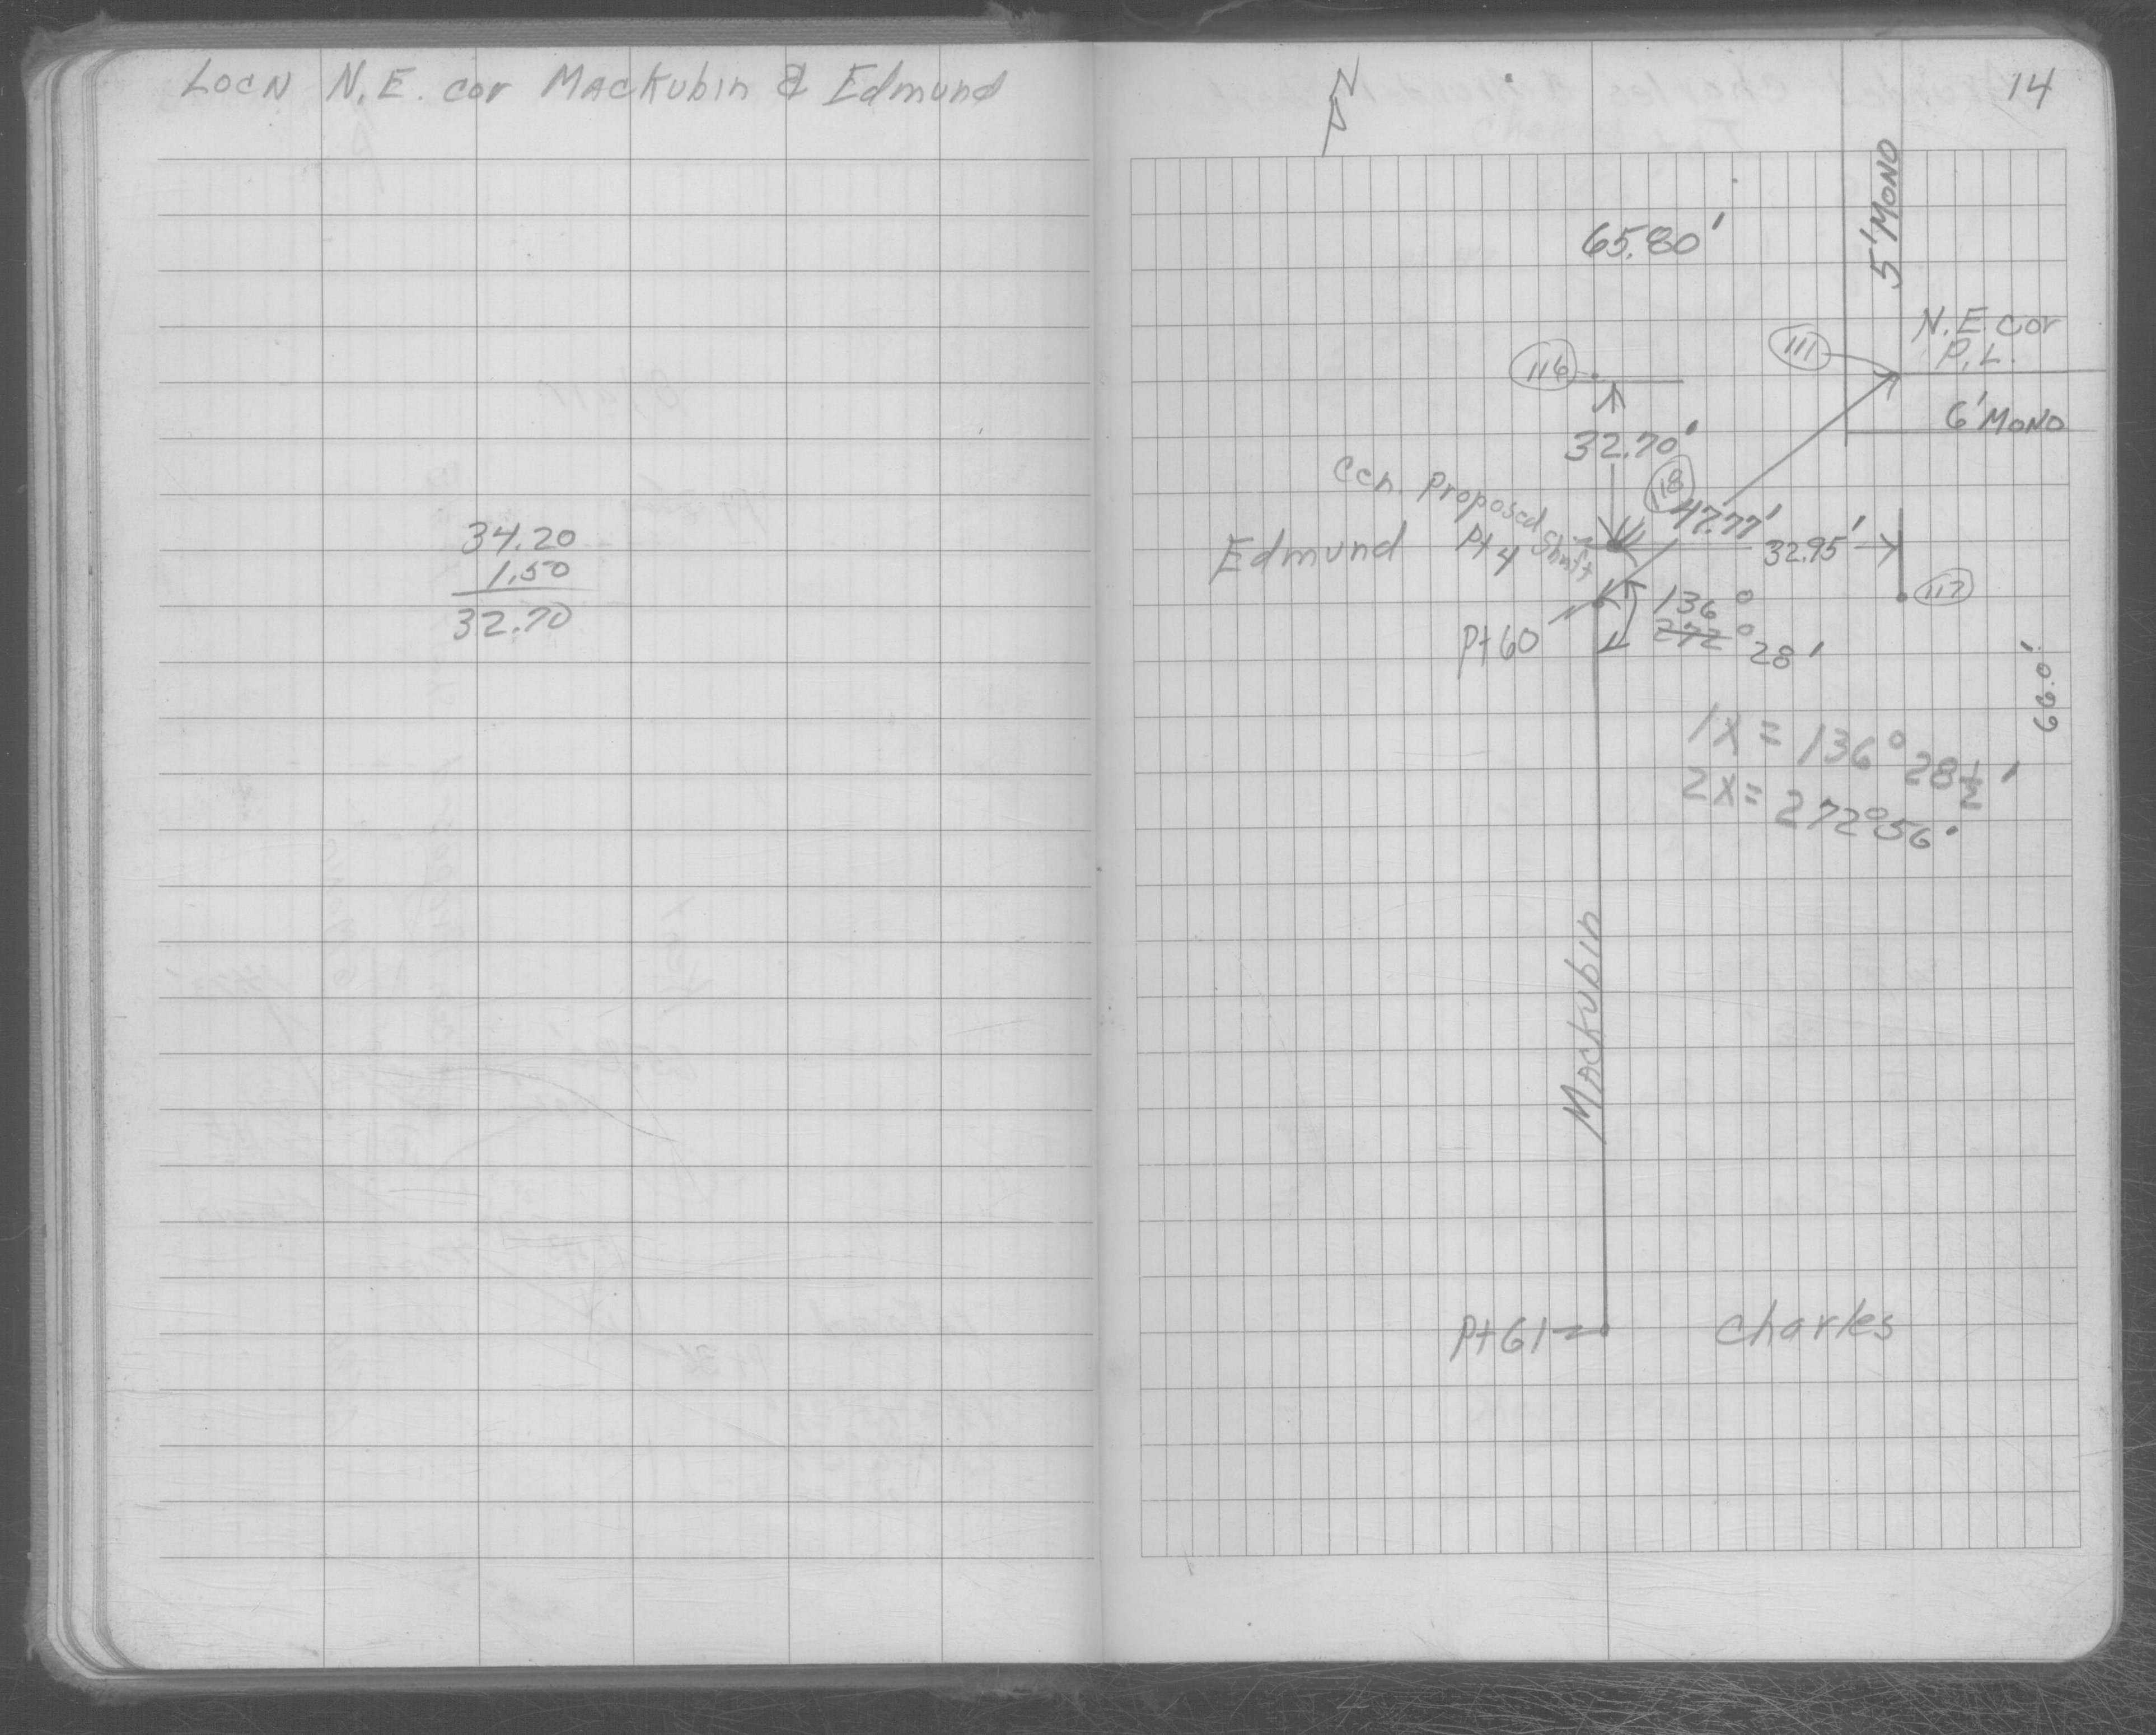 Locn N.E. cor Mackubin & Edmund
34.20
1.50
32.70
14
N
5' MONO
65.80'
N.E. cor
P.L.
111
116
6' MONO
32.70'
118
Cen. Proposed Shaft
47.77'
Edmund
Pt 4
32.95'
117
136°
272° 28'
Pt 60
66.0'
1X = 136° 28 1/2'
2X = 272° 56'
Mackubin
Pt 61
Charles